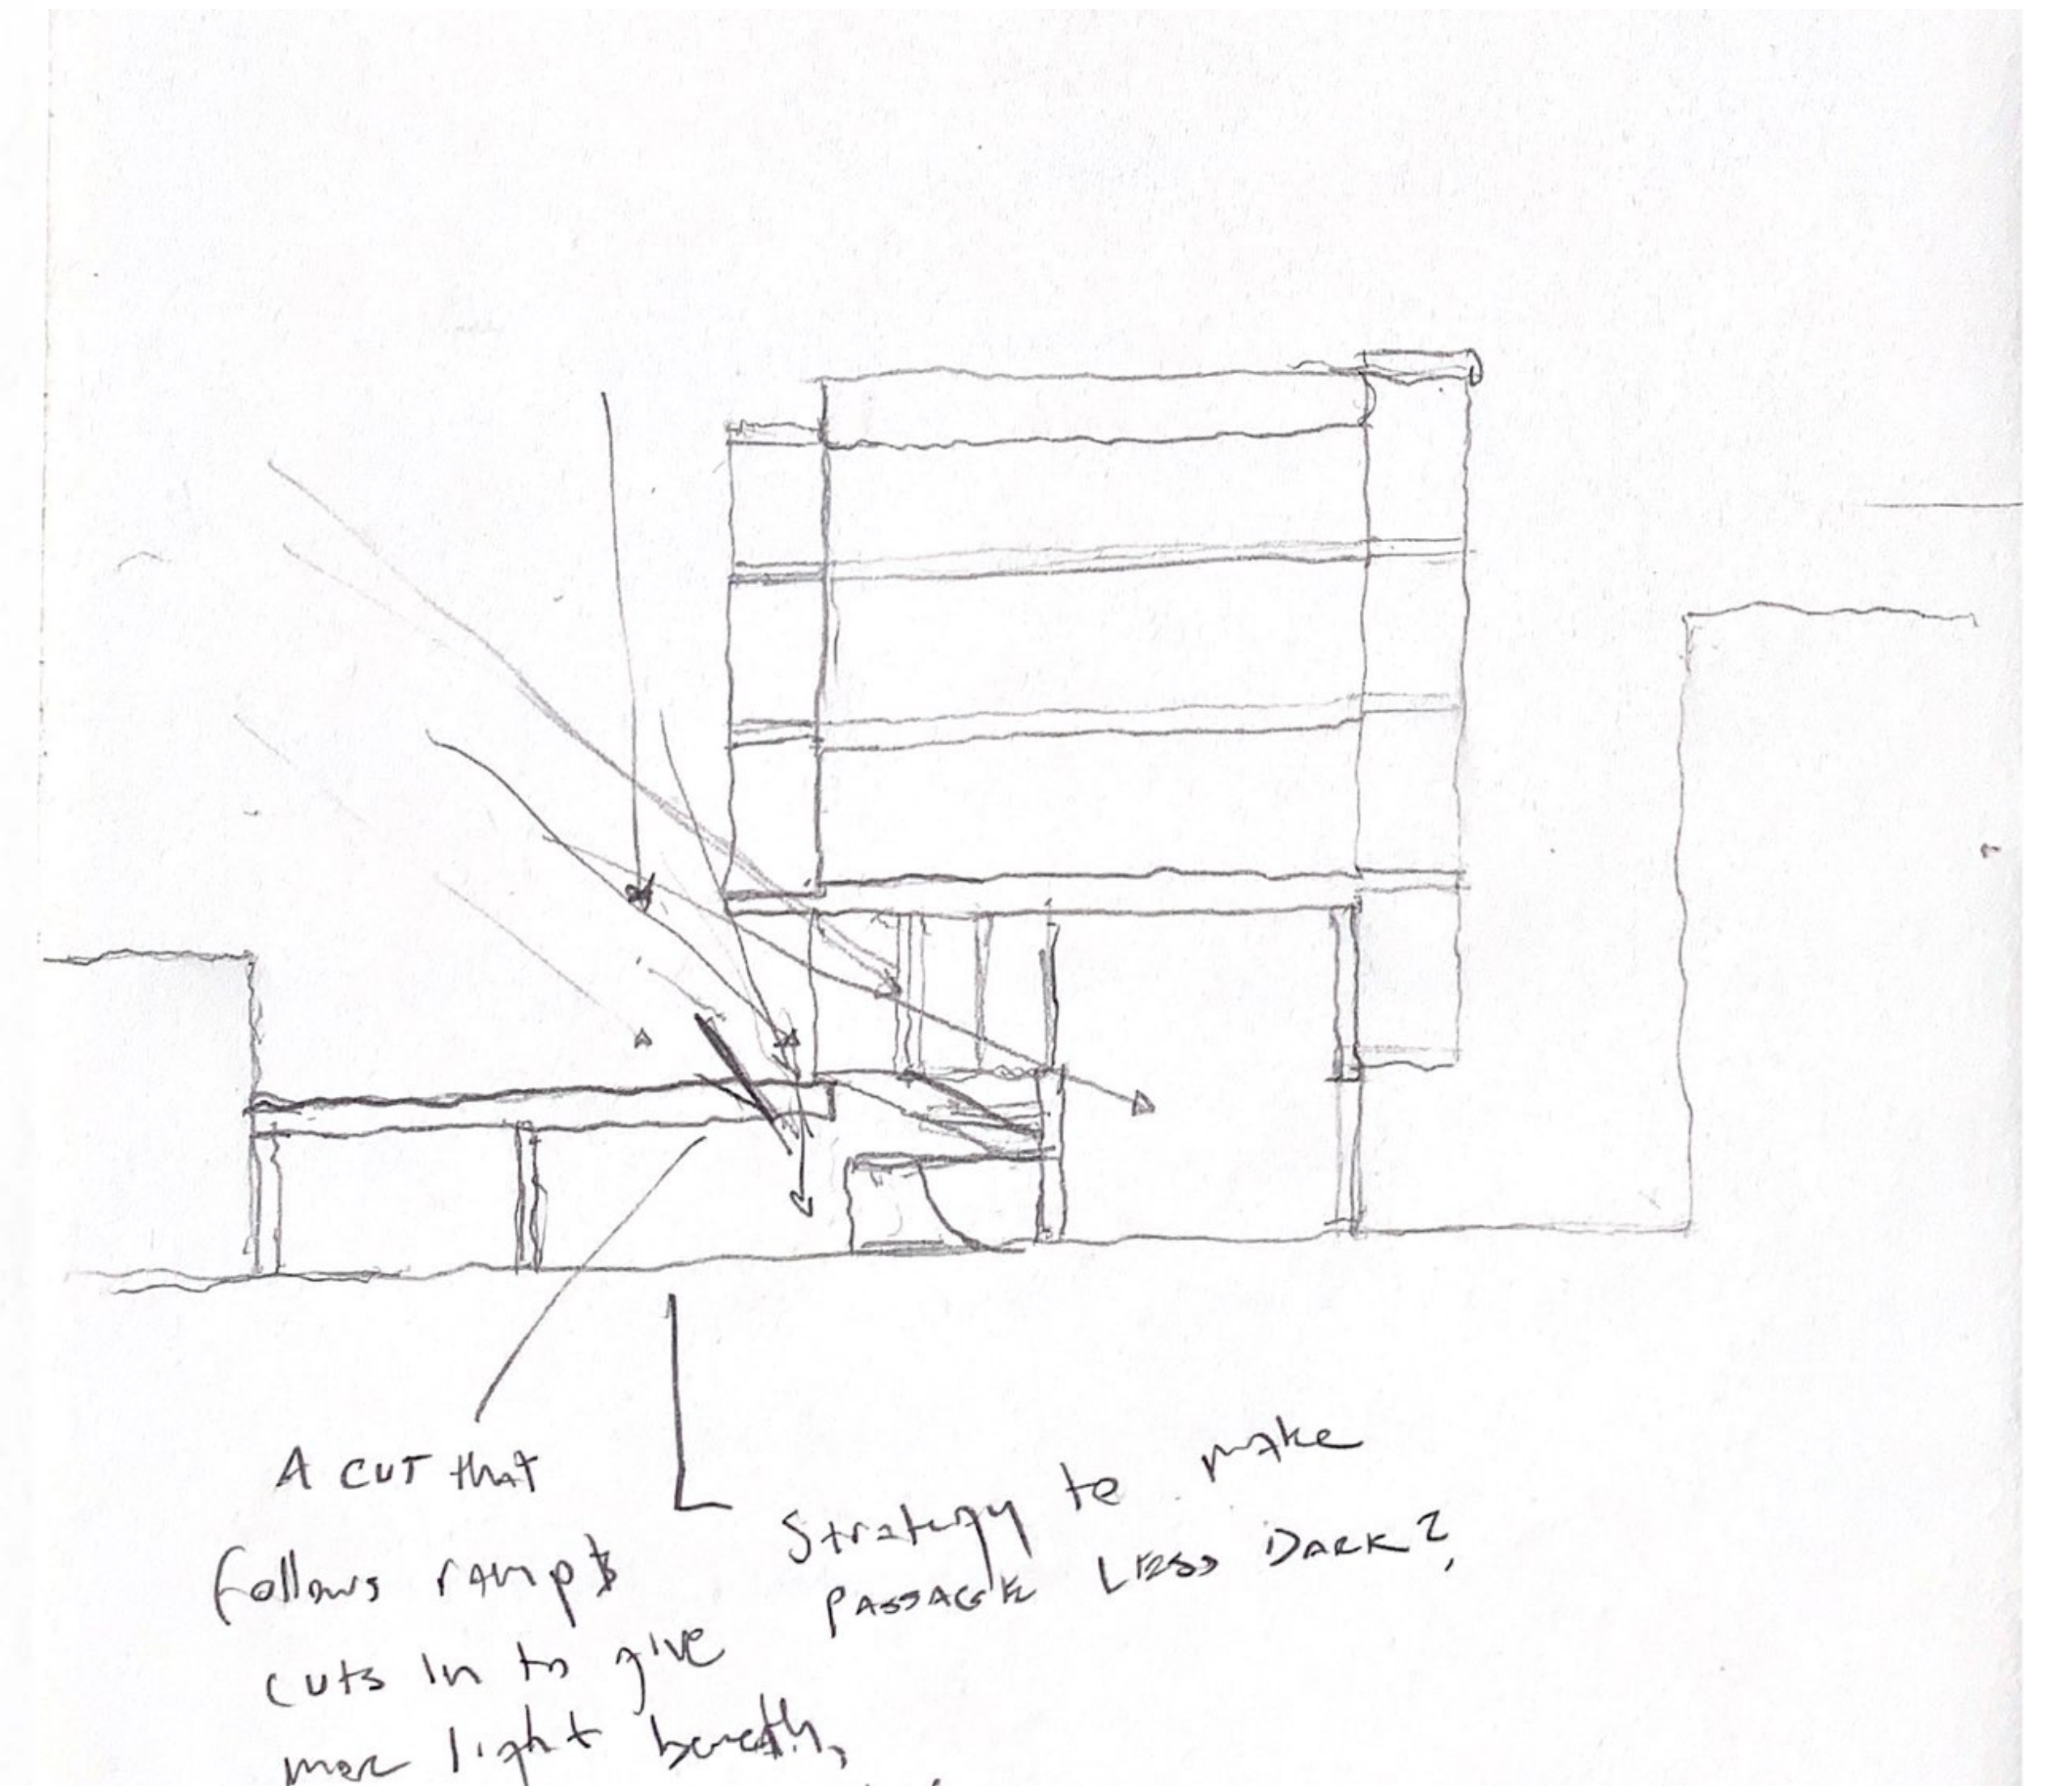 A CUT that
follows ramp &
cuts in to give
more light beneath,
Strategy to make
PASSAGE LESS DARK?,